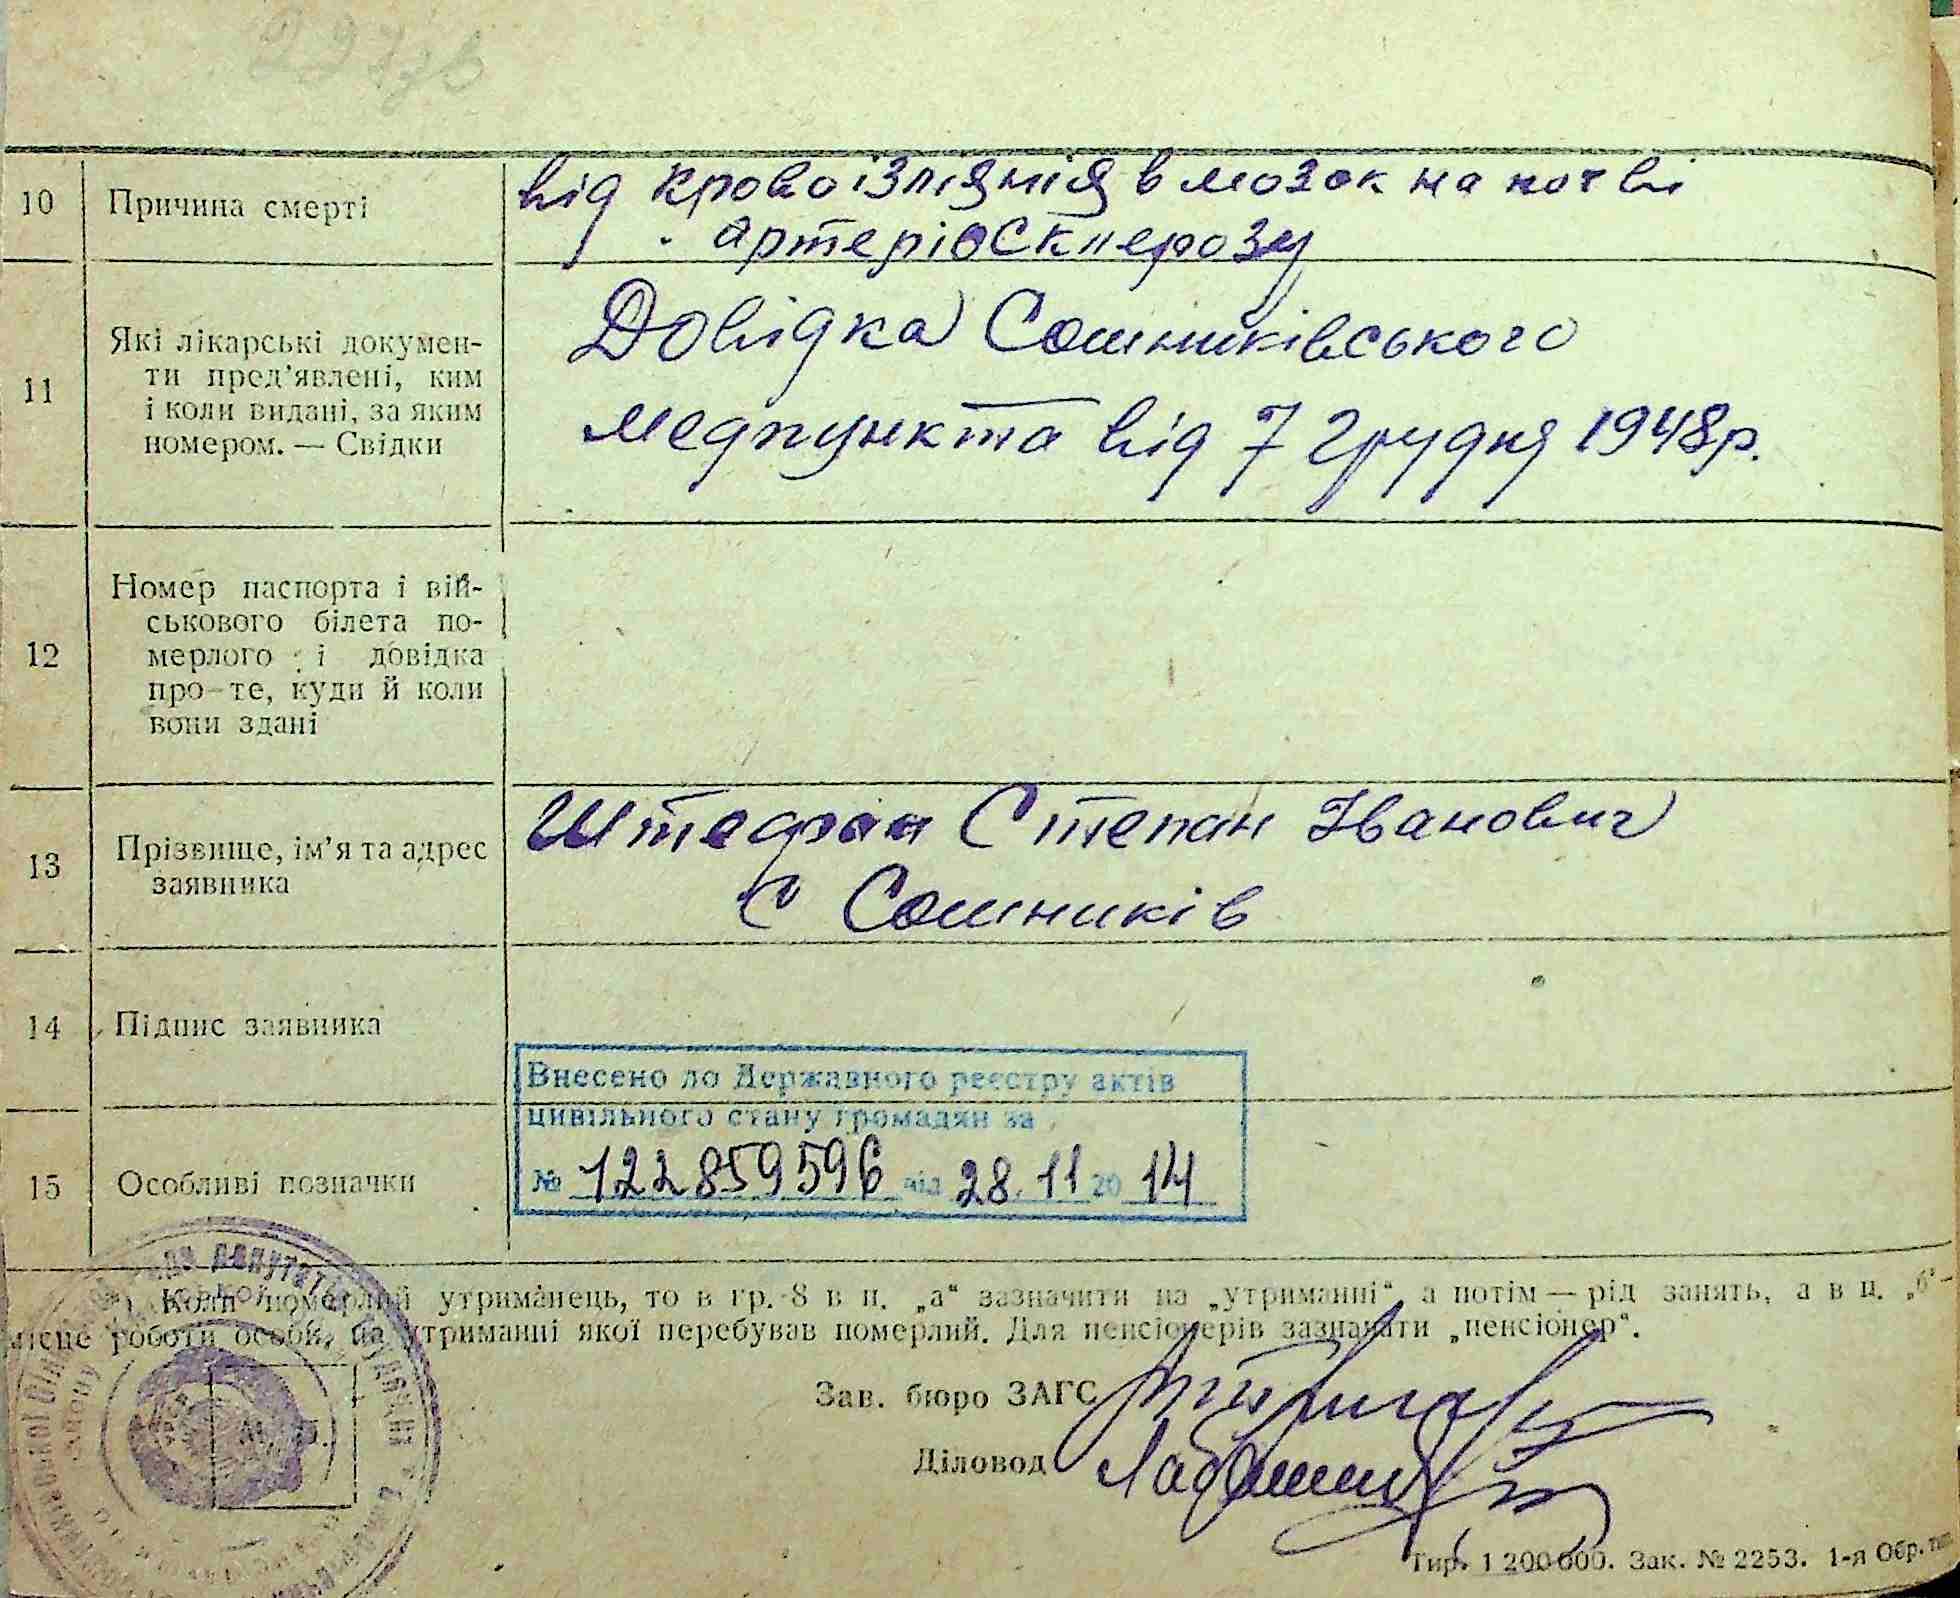 10
Причина смерті
від кровоізліянія в мозок на почві
артеріосклерозу
11
Які лікарські докумен-
ти пред’явлені, ким
і коли видані, за яким
номером. — Свідки
Довідка Сошниківського
медпункта від 7 грудня 1948р.
12
Номер паспорта і вій-
ськового білета по-
мерлого і довідка
про те, куди й коли
вони здані
13
Прізвище, ім’я та адрес
заявника
Штефан Степан Іванович
с Сошників
14
Підпис заявника
Внесено до Державного реєстру актів
цивільного стану громадян за
№ 122859596 від 28.11 2014
15
Особливі позначки
Коли померлий утриманець, то в гр. 8 в п. „а“ зазначити на „утриманні“, а потім — рід занять, а в п. „б“ —
місце роботи особи, на утриманні якої перебував померлий. Для пенсіонерів зазначати „пенсіонер“.
Зав. бюро ЗАГС
Діловод
М. П.
Тир. 1 200 000. Зак. № 2253. 1-я Обр. тип